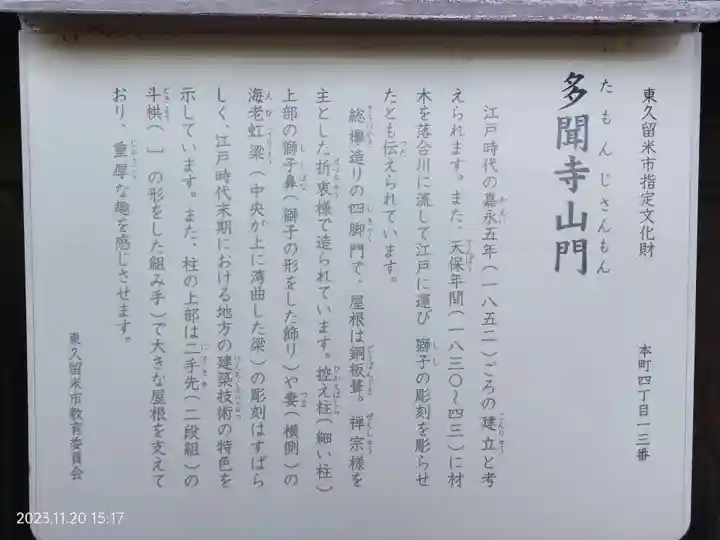 東久留米市指定文化財
本町四丁目一三番
たもんじさんもん
多聞寺山門
江戸時代の嘉永五年(一八五二)ごろの建立と考
えられます。また、天保年間(一八三〇~四三)に材
木を落合川に流して江戸に運び 獅子の彫刻を彫らせ
たとも伝えられています。
総欅造りの四脚門で、屋根は銅板葺。禅宗様を
主とした折衷様で造られています。控え柱(細い柱)
上部の獅子鼻(獅子の形をした飾り)や妻(横側)の
海老虹梁(中央が上に湾曲した梁)の彫刻はすばら
しく、江戸時代末期における地方の建築技術の特色を
示しています。また、柱の上部は二手先(二段組)の
斗栱( の形をした組み手)で大きな屋根を支えて
おり、重厚な趣を感じさせます。
東久留米市教育委員会
2023.11.20 15:17